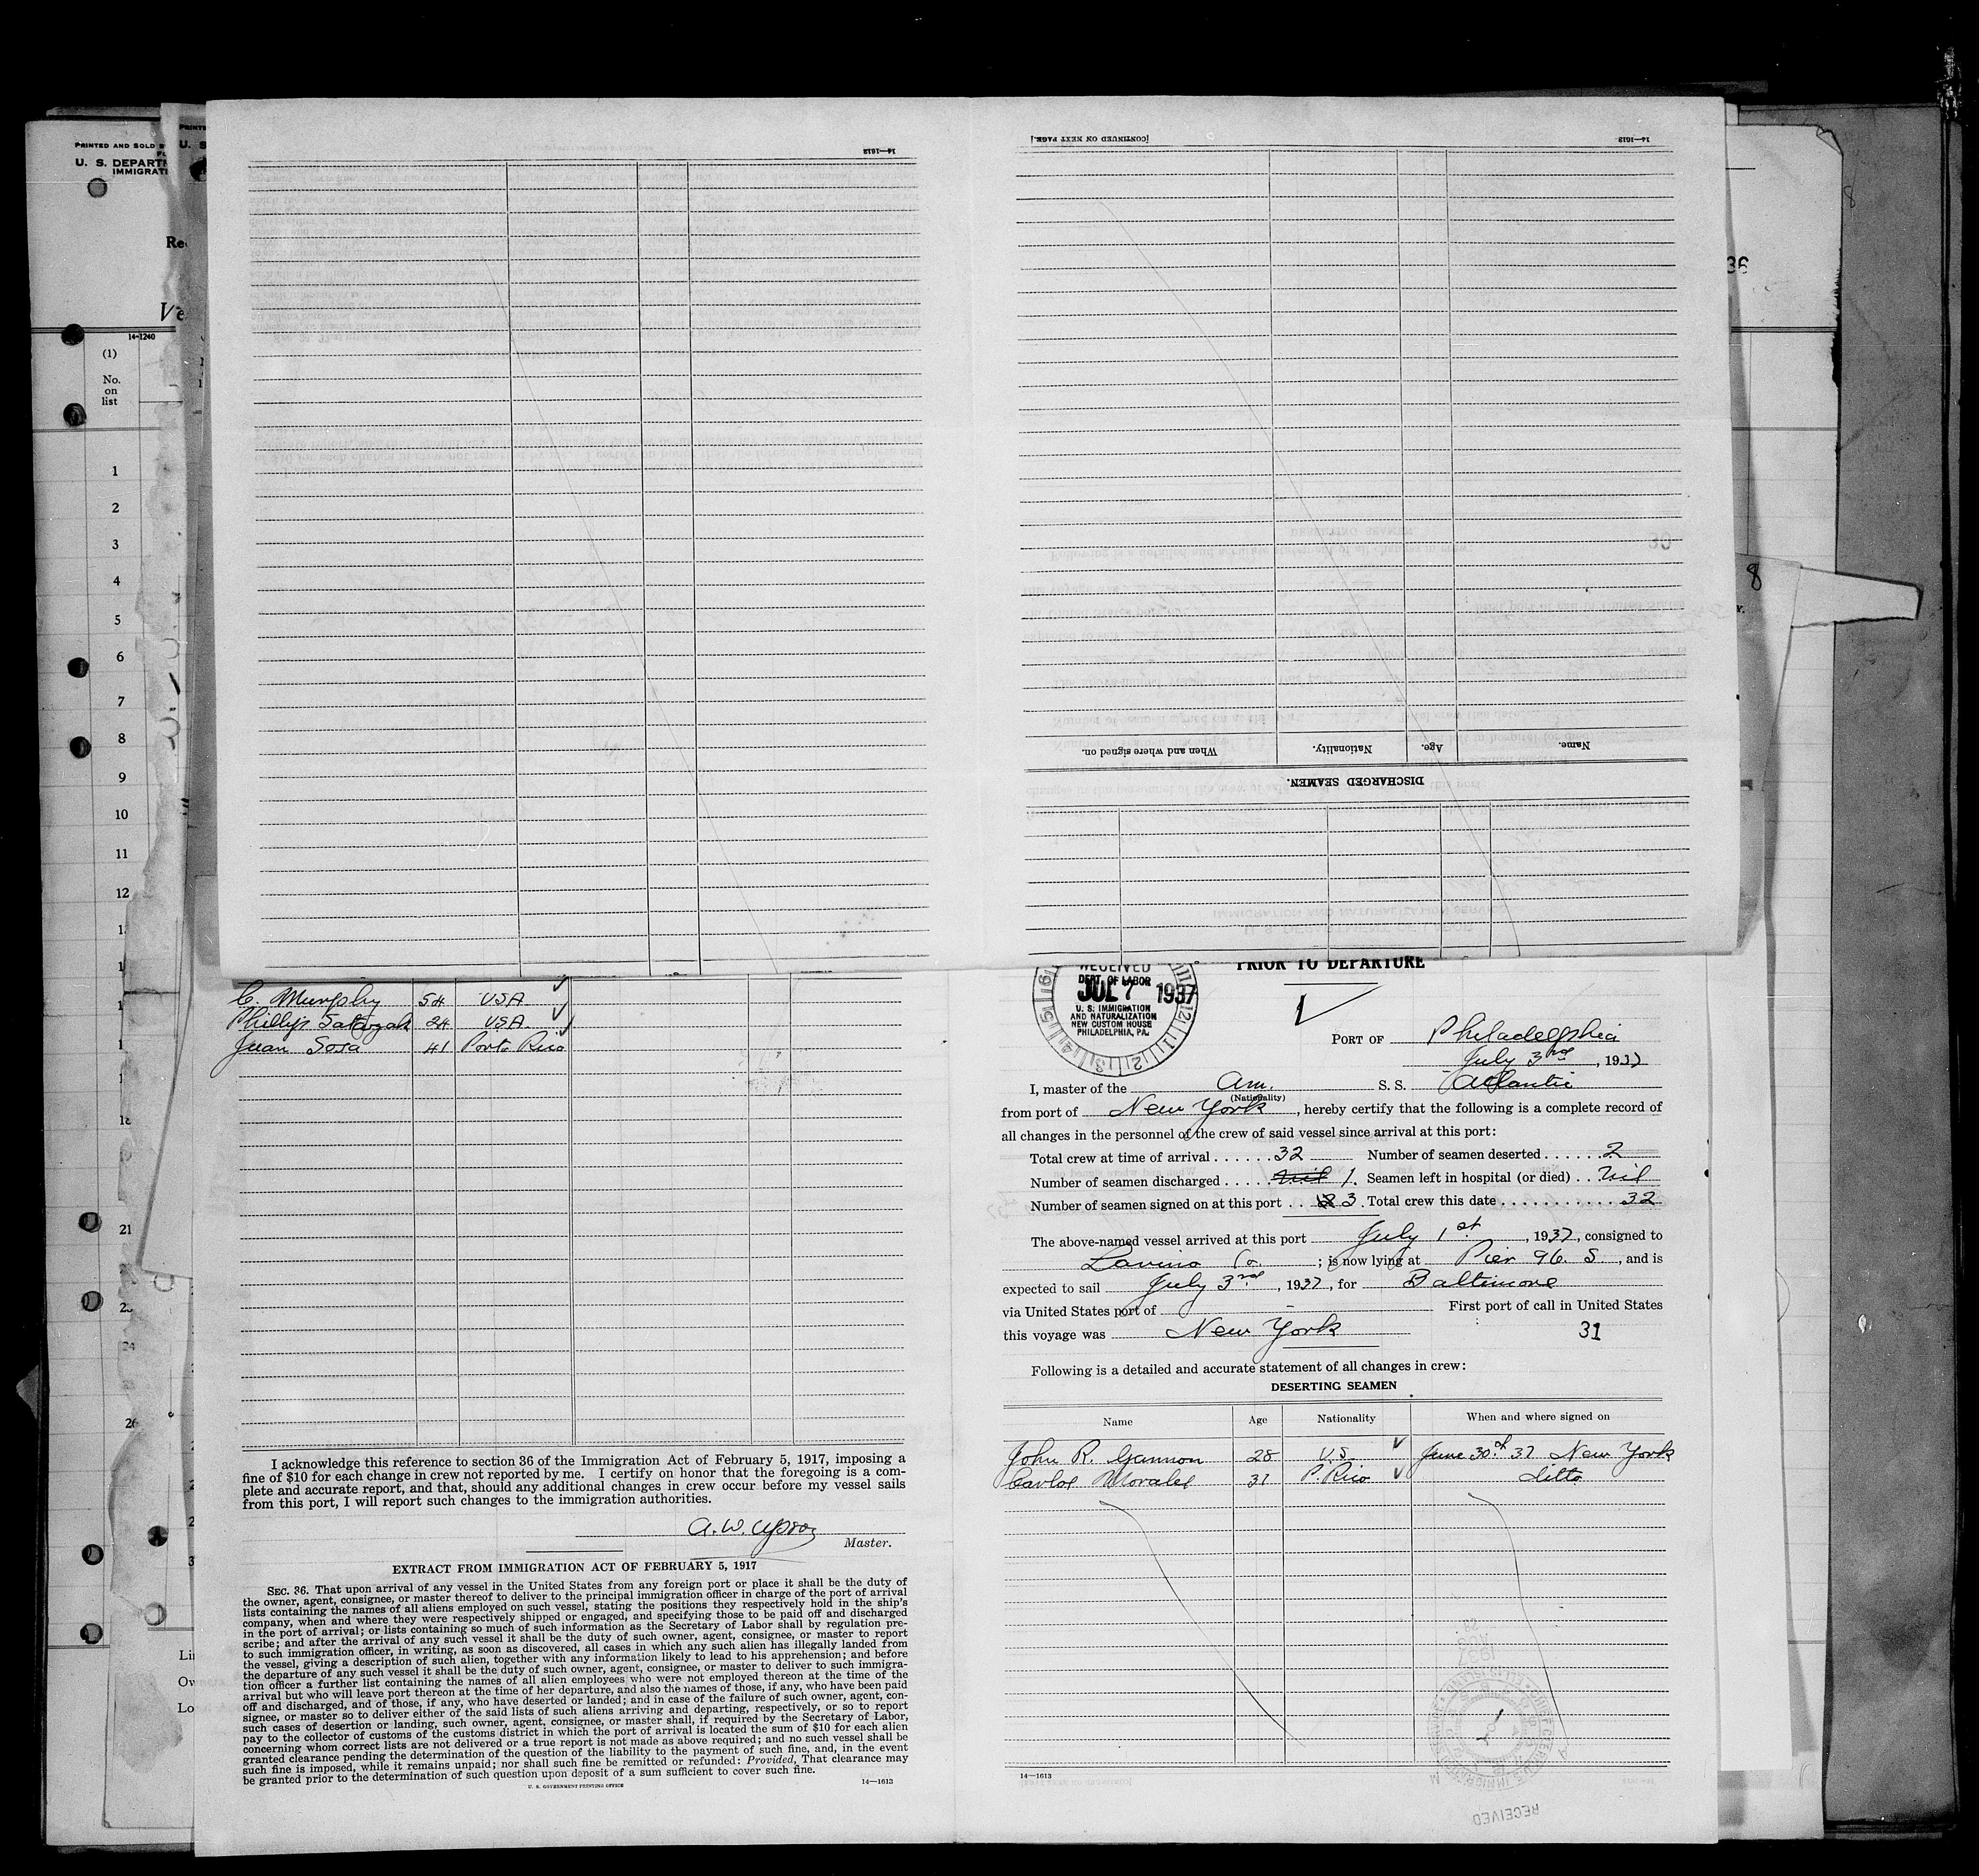 PRINTED AND SOLD
U. S. DEPART
IMMIGRATI
14-1240
(1)
No.
on
list
1
2
3
4
5
6
7
8
9
10
11
12
21
24
14—1613
[CONTINUED ON NEXT PAGE.]
14—1613
36
8
When and where signed on.
Nationality.
Age.
Name.
DISCHARGED SEAMEN.
C. Murphy 54 USA
Phillip 24 USA
Juan Sosa 41 Porto Rico
I acknowledge this reference to section 36 of the Immigration Act of February 5, 1917, imposing a
fine of $10 for each change in crew not reported by me. I certify on honor that the foregoing is a com-
plete and accurate report, and that, should any additional changes in crew occur before my vessel sails
from this port, I will report such changes to the immigration authorities.
A. W.
Master.
EXTRACT FROM IMMIGRATION ACT OF FEBRUARY 5, 1917
SEC. 36. That upon arrival of any vessel in the United States from any foreign port or place it shall be the duty of
the owner, agent, consignee, or master thereof to deliver to the principal immigration officer in charge of the port of arrival
lists containing the names of all aliens employed on such vessel, stating the positions they respectively hold in the ship's
company, when and where they were respectively shipped or engaged, and specifying those to be paid off and discharged
in the port of arrival; or lists containing so much of such information as the Secretary of Labor shall by regulation pre-
scribe; and after the arrival of any such vessel it shall be the duty of such owner, agent, consignee, or master to report
to such immigration officer, in writing, as soon as discovered, all cases in which any such alien has illegally landed from
the vessel, giving a description of such alien, together with any information likely to lead to his apprehension; and before
the departure of any such vessel it shall be the duty of such owner, agent, consignee, or master to deliver to such immigra-
tion officer a further list containing the names of all alien employees who were not employed thereon at the time of the
arrival but who will leave port thereon at the time of her departure, and also the names of those, if any, who have been paid
off and discharged, and of those, if any, who have deserted or landed; and in case of the failure of such owner, agent, con-
signee, or master so to deliver either of the said lists of such aliens arriving and departing, respectively, or so to report
such cases of desertion or landing, such owner, agent, consignee, or master shall, if required by the Secretary of Labor,
pay to the collector of customs of the customs district in which the port of arrival is located the sum of $10 for each alien
concerning whom correct lists are not delivered or a true report is not made as above required; and no such vessel shall be
granted clearance pending the determination of the question of the liability to the payment of such fine, and, in the event
such fine is imposed, while it remains unpaid; nor shall such fine be remitted or refunded: Provided, That clearance may
be granted prior to the determination of such question upon deposit of a sum sufficient to cover such fine.
U. S. GOVERNMENT PRINTING OFFICE
14—1613
PRIOR TO DEPARTURE
RECEIVED
DEPT. OF LABOR
JUL 7 1937
U. S. IMMIGRATION
AND NATURALIZATION
NEW CUSTOM HOUSE
PHILADELPHIA, PA.
PORT OF Philadelphia
July 3rd, 1937
I, master of the Am. S. S. Atlantic
(Nationality)
from port of New York, hereby certify that the following is a complete record of
all changes in the personnel of the crew of said vessel since arrival at this port:
Total crew at time of arrival . . . . . . 32 Number of seamen deserted . . . . . . 2
Number of seamen discharged . . . . . nil 1. Seamen left in hospital (or died) . . Nil
Number of seamen signed on at this port . . 3. Total crew this date . . . . . . . . . . . 32
The above-named vessel arrived at this port July 1st, 1937, consigned to
Lavino Co.; is now lying at Pier 96. S, and is
expected to sail July 3rd, 1937, for Baltimore
via United States port of - First port of call in United States
this voyage was New York
31
Following is a detailed and accurate statement of all changes in crew:
DESERTING SEAMEN
Name Age Nationality When and where signed on
John R. Gannon 28 U.S. June 30th 37 New York
Carlos Morales 31 P. Rico ditto
14—1613
RECEIVED